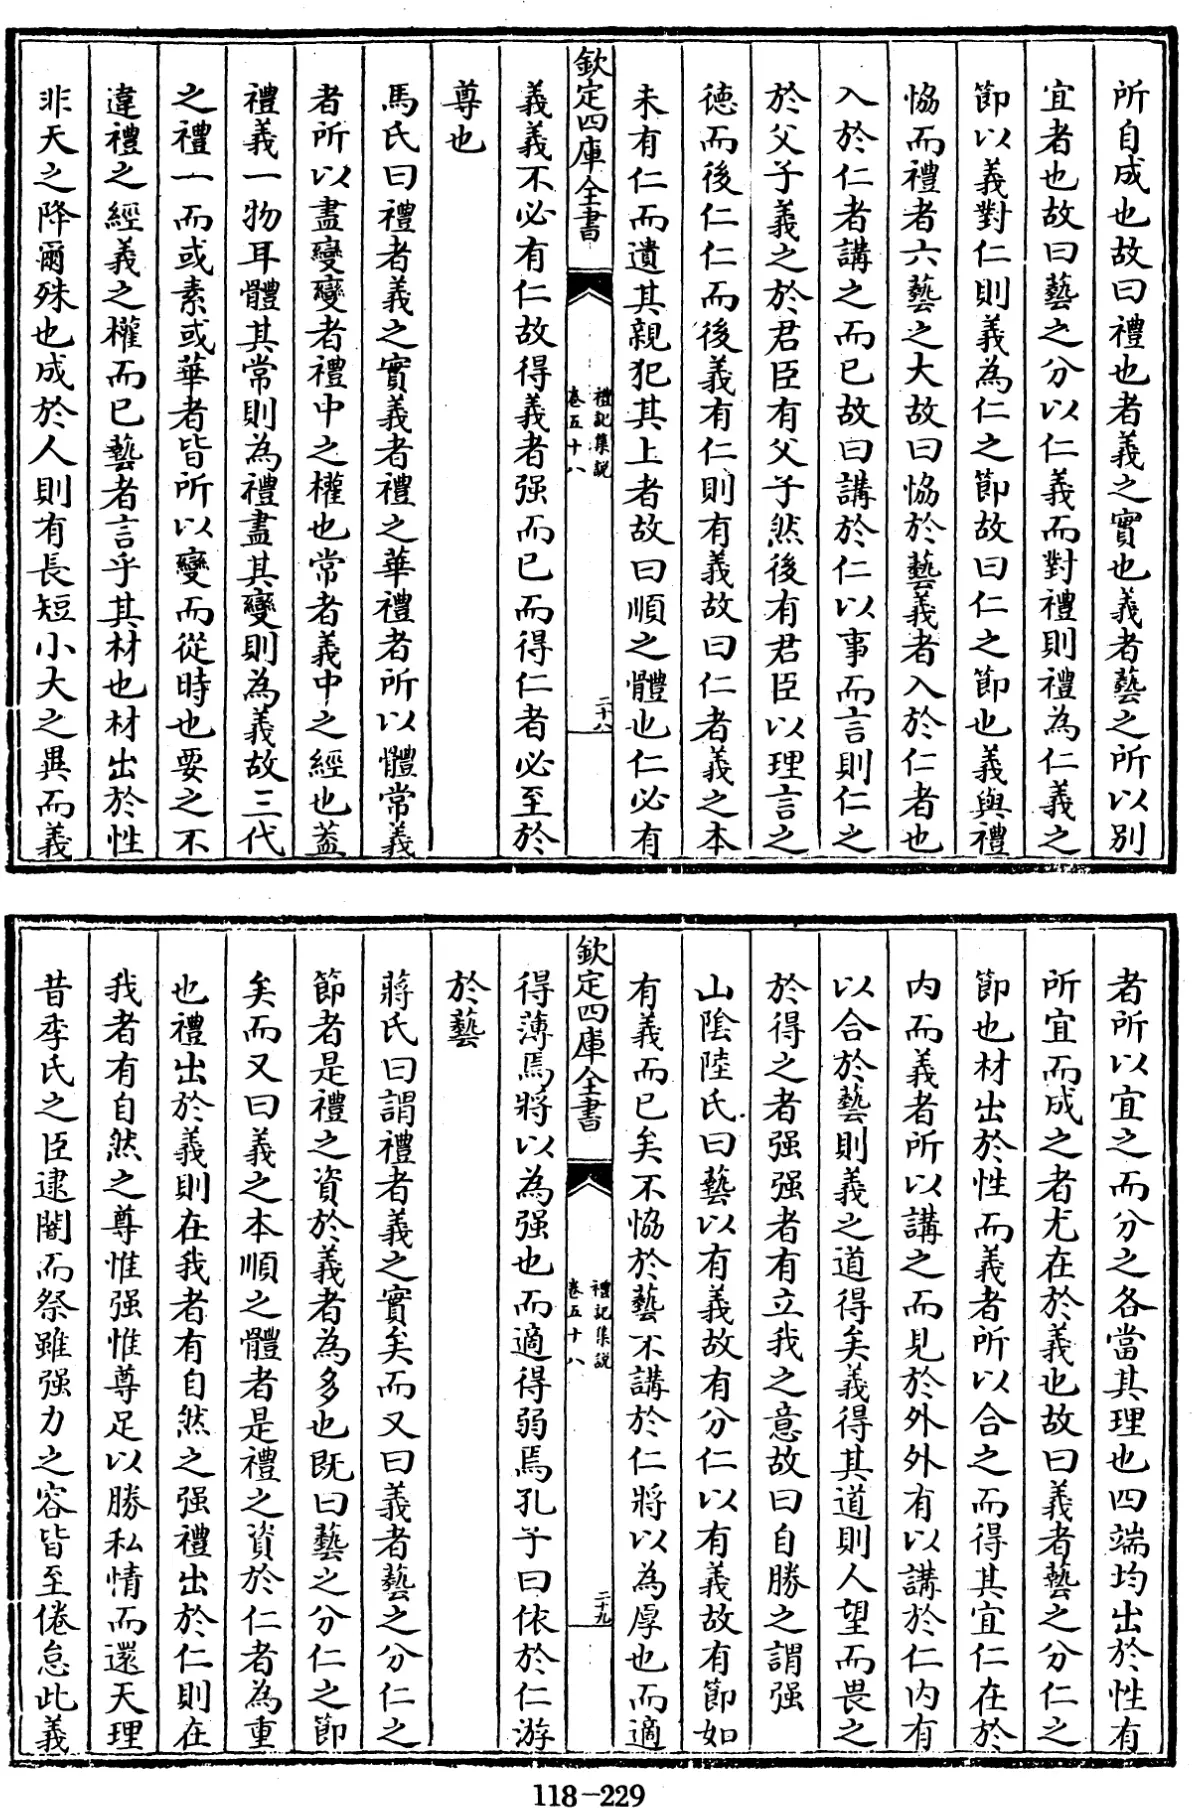 所自成也故曰禮也者義之實也義者藝之所以別
宜者也故曰藝之分以仁義而對禮則禮為仁義之
節以義對仁則義為仁之節故曰仁之節也義與禮
恊而禮者六藝之大故曰恊於藝義者入於仁者也
入於仁者講之而已故曰講於仁以事而言則仁之
於父子義之於君臣有父子然後有君臣以理言之
德而後仁仁而後義有仁則有義故曰仁者義之本
未有仁而遺其親犯其上者故曰順之體也仁必有
欽定四庫全書
禮記集説
卷五十八
二十八
義義不必有仁故得義者强而已而得仁者必至於
尊也
馬氏曰禮者義之實義者禮之華禮者所以體常義
者所以盡變變者禮中之權也常者義中之經也葢
禮義一物耳體其常則為禮盡其變則為義故三代
之禮一而或素或華者皆所以變而從時也要之不
違禮之經義之權而已藝者言乎其材也材出於性
非天之降爾殊也成於人則有長短小大之異而義
者所以宜之而分之各當其理也四端均出於性有
所宜而成之者尤在於義也故曰義者藝之分仁之
節也材出於性而義者所以合之而得其宜仁在於
内而義者所以講之而見於外外有以講於仁内有
以合於藝則義之道得矣義得其道則人望而畏之
於得之者强强者有立我之意故曰自勝之謂强
山陰陸氏曰藝以有義故有分仁以有義故有節如
有義而已矣不恊於藝不講於仁將以為厚也而適
欽定四庫全書
禮記集説
卷五十八
二十九
得薄焉將以為强也而適得弱焉孔子曰依於仁游
於藝
蔣氏曰謂禮者義之實矣而又曰義者藝之分仁之
節者是禮之資於義者為多也既曰藝之分仁之節
矣而又曰義之本順之體者是禮之資於仁者為重
也禮出於義則在我者有自然之强禮出於仁則在
我者有自然之尊惟强惟尊足以勝私情而還天理
昔季氏之臣逮闇而祭雖强力之容皆至倦怠此義
118-229